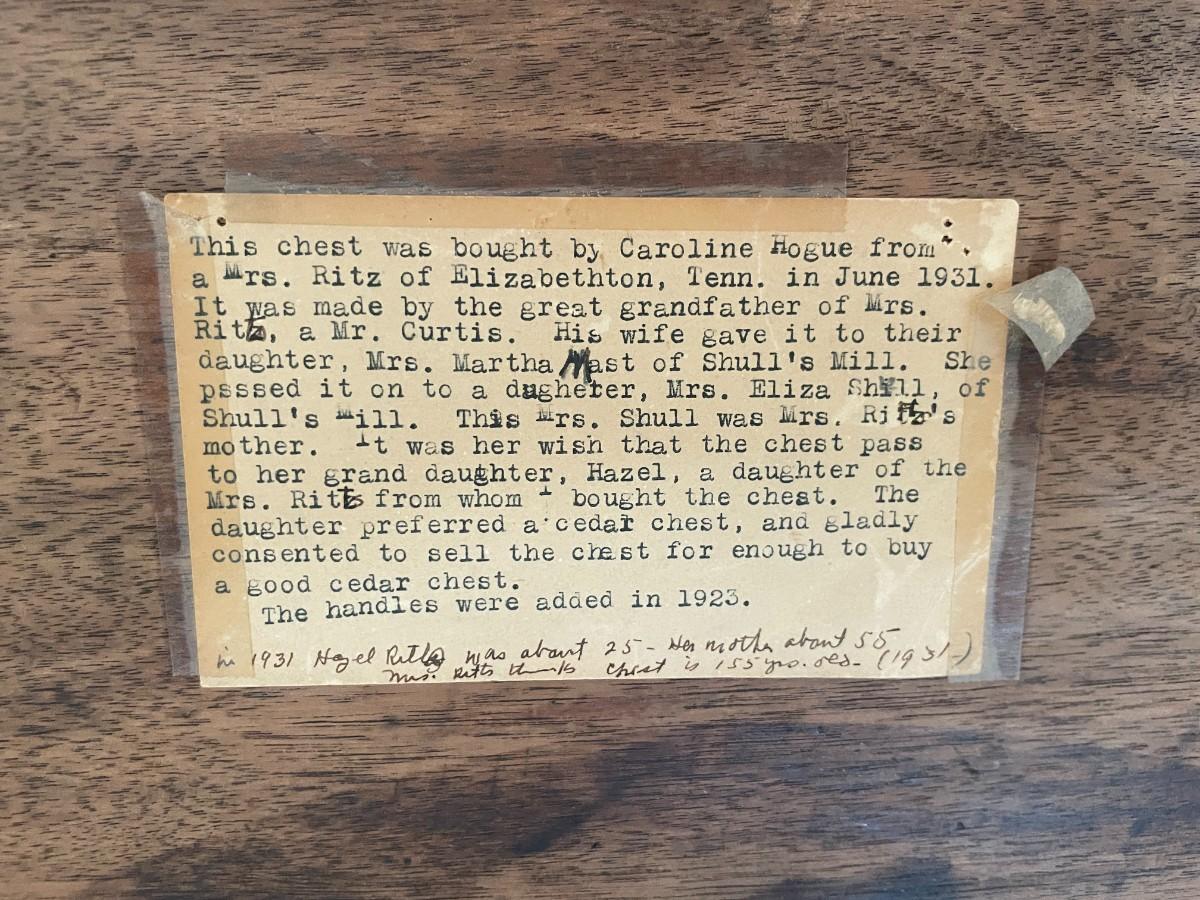 This chest was bought by Caroline Hogue from
a Mrs. Ritz of Elizabethton, Tenn. in June 1931.
It was made by the great grandfather of Mrs.
Ritz, a Mr. Curtis. His wife gave it to their
daughter, Mrs. Martha Mast of Shull's Mill. She
psssed it on to a dugheter, Mrs. Eliza Shull, of
Shull's Mill. This Mrs. Shull was Mrs. Ritz's
mother. It was her wish that the chest pass
to her grand daughter, Hazel, a daughter of the
Mrs. Ritts from whom I bought the chest. The
daughter preferred a cedar chest, and gladly
consented to sell the chest for enough to buy
a good cedar chest.
The handles were added in 1923.
in 1931 Hazel was about 25 - Her mother about 55
Mrs. Ritts thinks chest is 155 yrs. old - (1931-)